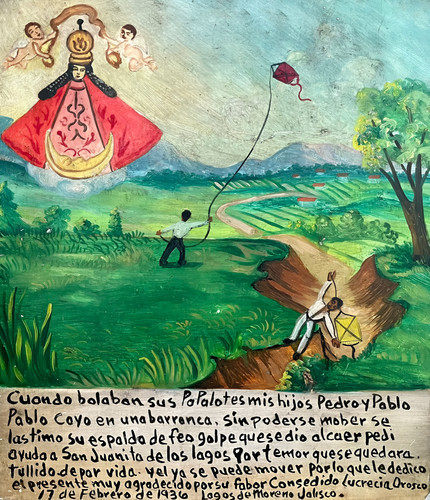 Cuando bolaban sus PaPalotes mis hijos Pedro y Pablo
Pablo Cayo en una barronca. sin poderse mober se
lastimo su espalda de feo golpe que se dio al caer pedi
ayuda a San Juanita de los lagos Por temor que se quedara.
tullido de por vida. y el ya se puede mover por lo que le dedico
el presente muy agradecido por su fabor Consedido Lucrecia Orosco
17 de Febrero de 1936 Lagos de Moreno Jalisco.